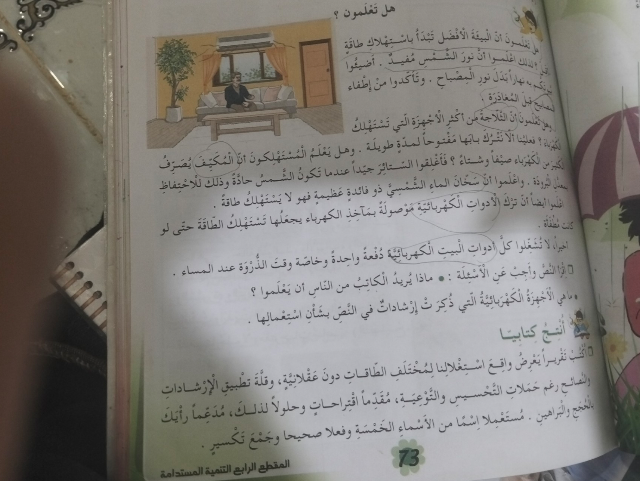 هل تَعْلَمون ؟
هل تَعْلَمُونَ أنَّ الْبيئةَ الْأفْضَل تَبْدَأُ باسْتِهْلاكِ طاقَةٍ
لذلك اعْلَموا أنَّ نورَ الشَّمْسِ مُفيدٌ . أضيئُوا
به نهاراً بَدَلَ نورِ الْمِصْباحِ . وَتَأكّدوا منْ إطْفاء
قبلَ الْمُغادَرَةِ .
وهل تَعْلَمُونَ أنَّ الثّلاجةَ مِن أكْثَرِ الْأجْهِزَةِ الّتي تَسْتَهْلِكُ
الْكَهْرَباءَ ؟ فعليْنا ألّا نَتْرُكَ بابَها مَفْتوحاً لمدّةٍ طويلَة . وهـل يَعْلَمُ الْمُسْتَهْلِكونَ أنَّ الْمُكَيِّفَ يُصَرِّفُ
الْكَهْرَباء صَيْفاً وشـتاءً ؟ فَأغْلِقوا السـتائرَ جيّداً عندما تَكونُ الشَّـمسُ حادّةً وذلك لِلْاحْتِفاظِ
الْبُرودَة . واعْلَموا أنّ سَخّانَ الماء الشّمْسِيَّ ذو فائدةٍ عَظيمةٍ فهو لا يَسْتَهْلِكُ طاقةً .
أيضاً أنّ تَرْكَ الْأدواتِ الْكَهْربائيَّةِ مَوْصولَةً بمَآخِذِ الكهرباء يجعلُها تَسْتَهْلِكُ الطّاقةَ حتّى لو
كانت مُطْفَأة .
أخيراً، لا تُشَغِّلوا كلَّ أدواتِ الْبيتِ الْكهربائيَّةِ دُفْعةً واحِدةً وخاصّة وقتَ الذُّرْوَةِ عند المساء .
أقْرَأُ النَّصَّ وأجيبُ عَنِ الْأسْئِلَة : • ماذا يُريدُ الْكاتِبُ من النّاسِ أن يَعْلَموا ؟
• ما هي الْأجْهِزَةُ الْكَهْرَبائِيَّةُ الّتي ذُكِرَتْ إرْشاداتٌ في النَّصّ بشَأْنِ اسْتِعْمالِها .
أُنتِجُ كتابِيـا
أكْتُبُ تَقْريـراً يَعْرِضُ واقِعَ اسْـتغْلالِنا لِمُخْتَلَفِ الطّاقـاتِ دونَ عَقْلانِيَّةٍ، وقلَّةَ تطْبيقِ الْإرْشـاداتِ
والنّصائـحِ رغم حَمَلاتِ التَّحْسـيسِ والتَّوْعِيَـةِ، مُقَدِّماً اقْتِراحـاتٍ وحلولاً لذلـك، مُدَعِّماً رأيَكَ
بالْحُجَجِ والْبَراهينِ . مُستَعْمِلا اِسْمًا من الأسْماءِ الْخَمْسَةِ وفعلا صحيحا وجَمْعَ تَكْسيرٍ .
73
المقطع الرابع التنمية المستدامة